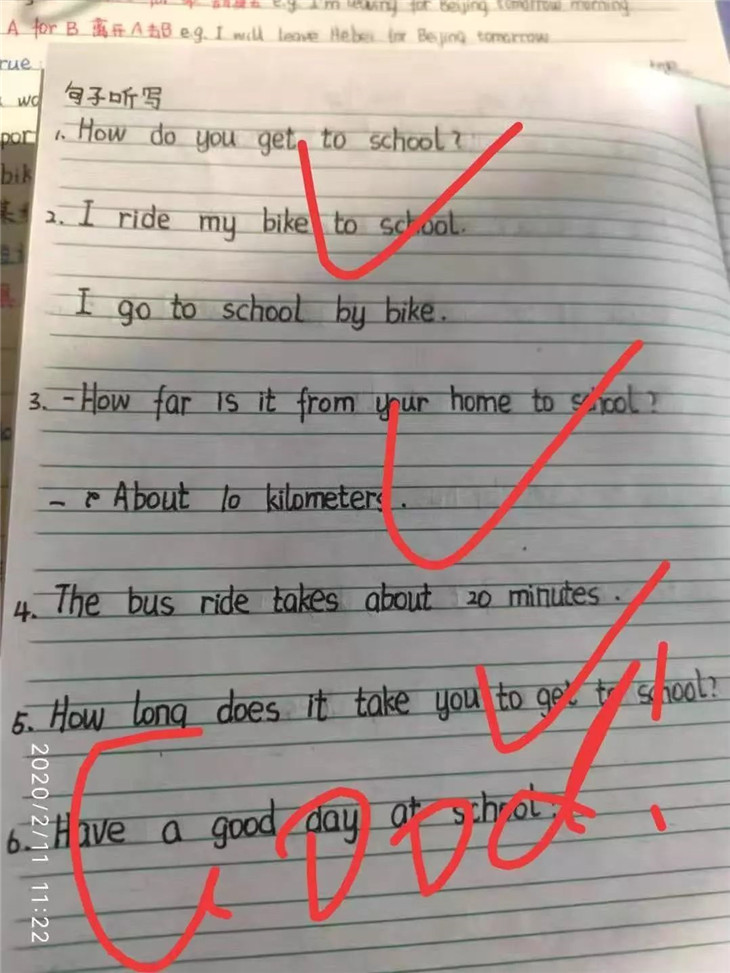 e.g. I'm leaving for Beijing tomorrow morning
A for B 离开A去B e.g. I will leave Hebei for Beijing tomorrow
rue
wo
por
bik
句子听写
1. How do you get to school?
2. I ride my bike to school.
I go to school by bike.
3. -How far is it from your home to school?
- About 10 kilometers.
4. The bus ride takes about 20 minutes.
5. How long does it take you to get to school?
6. Have a good day at school.
Good!
2020/2/11 11:22